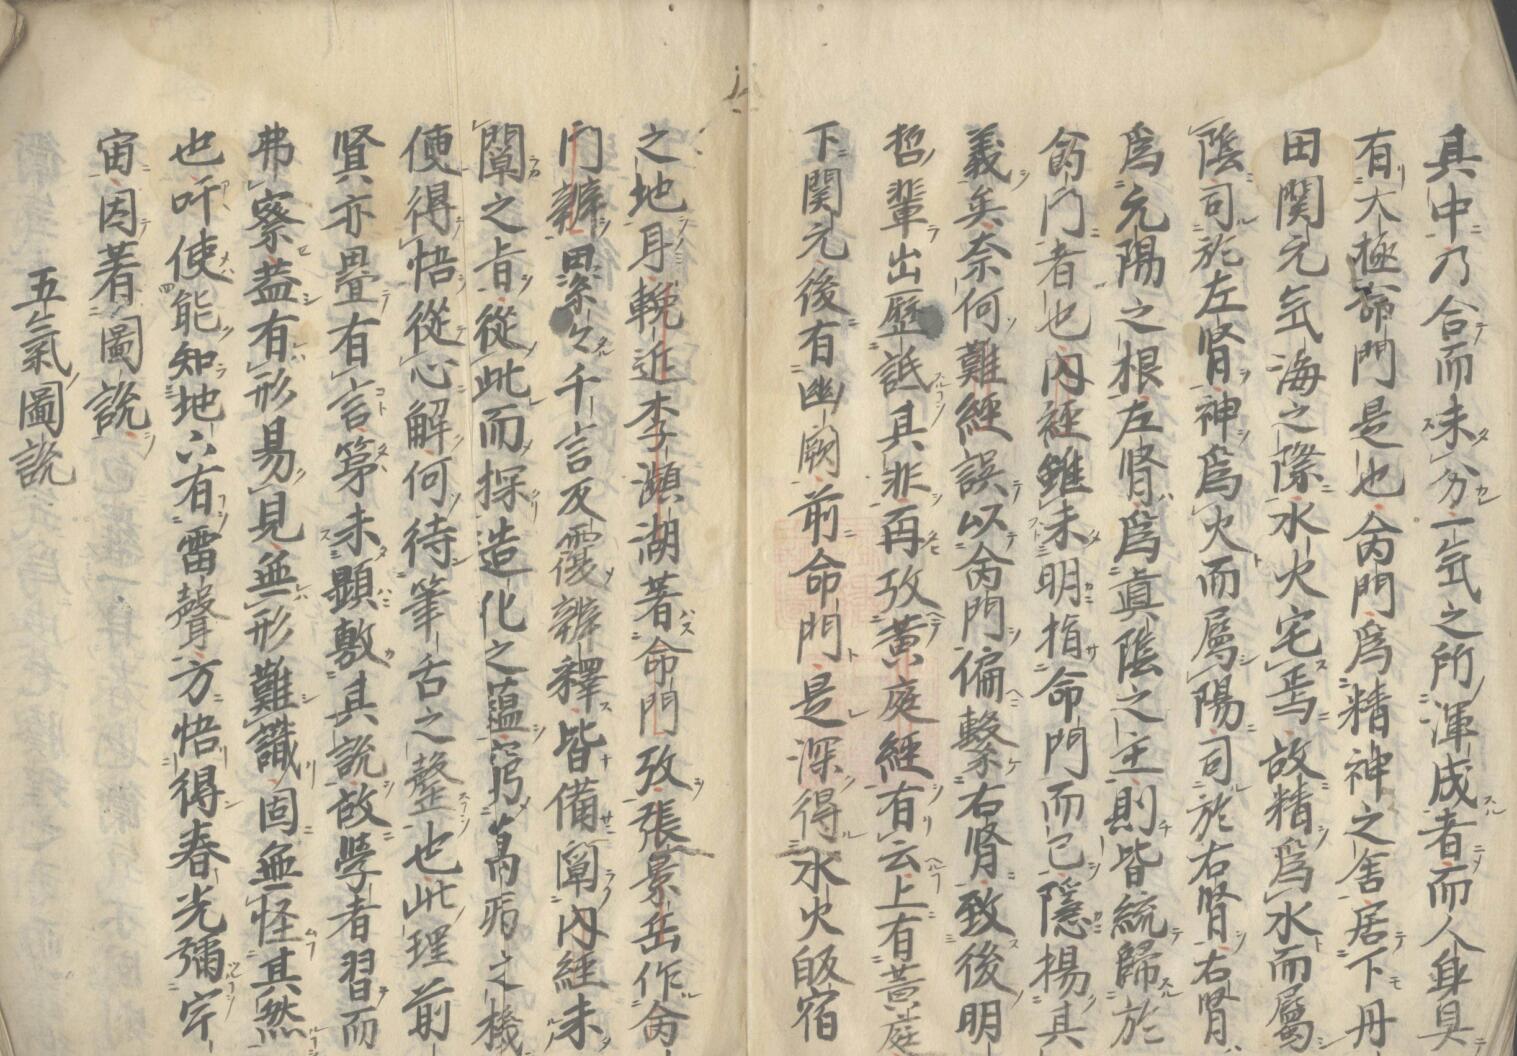 其中乃合而未分一気之所渾成者而人身具
有大極命門是也命門爲精神之舍居下丹
田関元気海之際水火宅焉故精爲水而屬
陰司於左腎神爲火而屬陽司於右腎右腎
爲元陽之根左腎爲眞陰之主則皆統歸於
命門者也内経雖未明指命門而已隱揚其
義矣奈何難經誤以命門偏繫右腎致後明
哲輩出歴詆其非再攷黄庭經有云上有黄庭
下関元後有幽厥前命門是深得水火皈宿
之地耳輓近李瀕湖著命門攷張景岳作命
門辨累々千言反覆辨釋皆備闡内經未
闡之旨從此而探造化之蘊窮萬病之機
便得悟從心解何待筆舌之聱也此理前
賢亦畳有言第未顕敷其說故學者習而
弗察蓋有形易見無形難識固無怪其然
也吁使能知地下有雷聲方悟得春光彌宇
宙因著圖説
五氣圖說